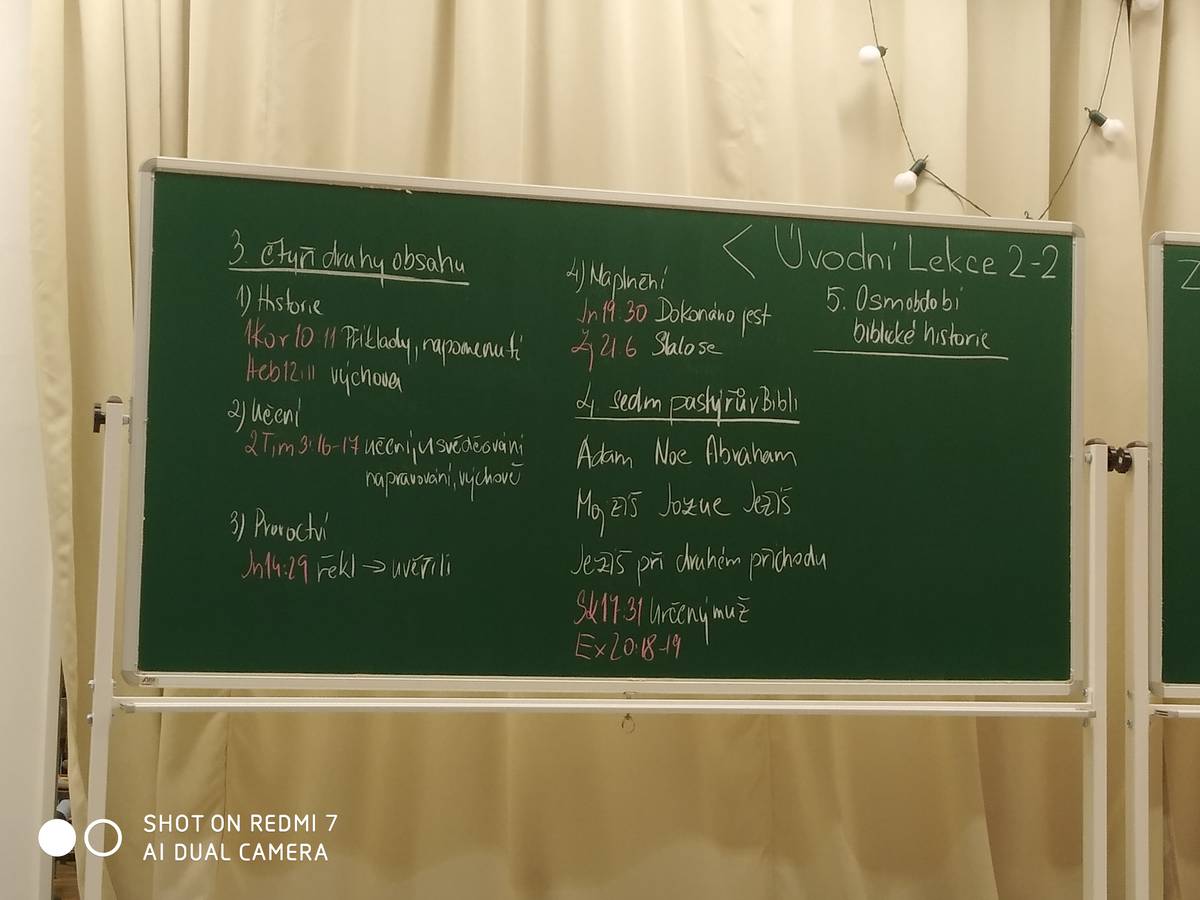 < Úvodní Lekce 2-2
3. čtyři druhy obsahu
1) Historie
1Kor 10:11 Příklady, napomenutí
Heb12:11 výchova
2) Učení
2Tim 3:16-17 učení, usvědčování
napravování, výchově
3) Proroctví
Jn14:29 řekl → uvěřili
4) Naplnění
Jn19:30 Dokonáno jest
Zj 21:6 Stalo se
4, sedm pastýřův Bibli
Adam Noe Abraham
Mojžíš Jozue Ježíš
Ježíš při druhém příchodu
Sk17:31 Určený muž
Ex20:18-19
5. Osmobdobí
biblické historie
Z
SHOT ON REDMI 7
AI DUAL CAMERA